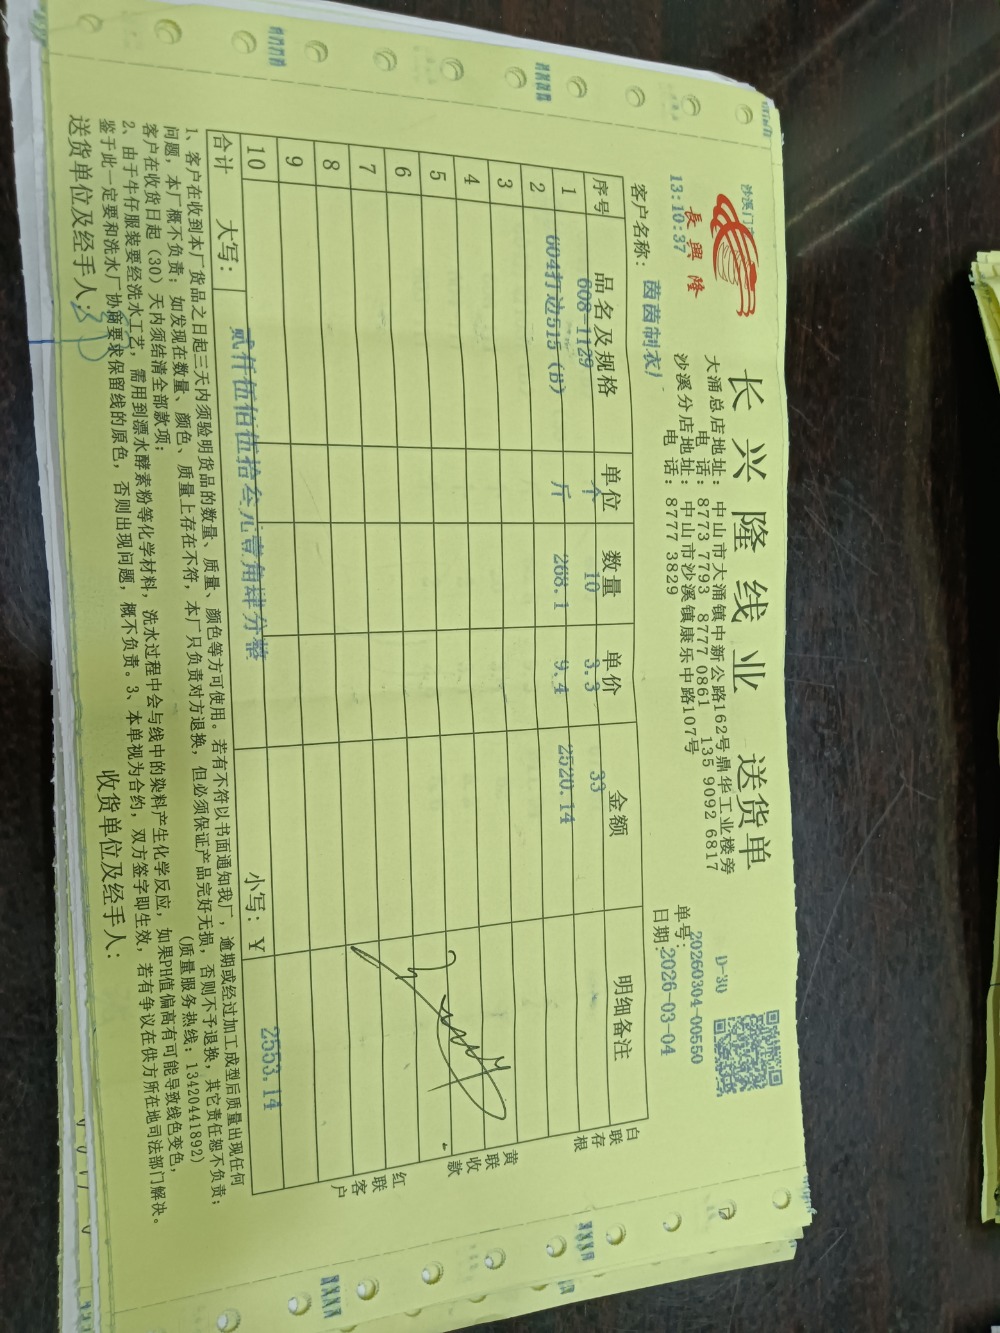 沙溪门
長興隆
长兴隆线业 送货单
大涌总店地址：中山市大涌镇中新公路162号鼎华工业楼旁
电 话：8773 7793 8777 0861 135 9092 6817
沙溪分店地址：中山市沙溪镇康乐中路107号
电 话：8777 3829
13:10:37
D-30
单号：20260304-00550
日期：2026-03-04
客户名称：茵茵制衣厂
序号 品名及规格 单位 数量 单价 金额 明细备注
1 608-1129 个 10 3.3 33
2 604打边515（B） 斤 268.1 9.4 2520.14
3
4
5
6
7
8
9
10
合计 大写：贰仟伍佰伍拾叁元壹角肆分整 小写：￥ 2553.14
白联存根
黄联收款
红联客户
1、客户在收到本厂货品之日起三天内须验明货品的数量、质量、颜色等方可使用。若有不符以书面通知我厂，逾期或经过加工成型后质量出现任何
问题，本厂概不负责；如发现在数量、颜色、质量上存在不符，本厂只负责对方退换，但必须保证产品完好无损，否则不予退换，其它责任恕不负责；
客户在收货日起（30）天内须结清全部款项； （质量服务热线：13420441892）
2、由于牛仔服装要经洗水工艺，需用到漂水酵素粉等化学材料，洗水过程中会与线中的染料产生化学反应，如果PH值偏高有可能导致线色变色，
鉴于此一定要和洗水厂协商要求保留线的原色，否则出现问题，概不负责。3、本单视为合约，双方签字即生效，若有争议在供方所在地司法部门解决。
送货单位及经手人： 收货单位及经手人：